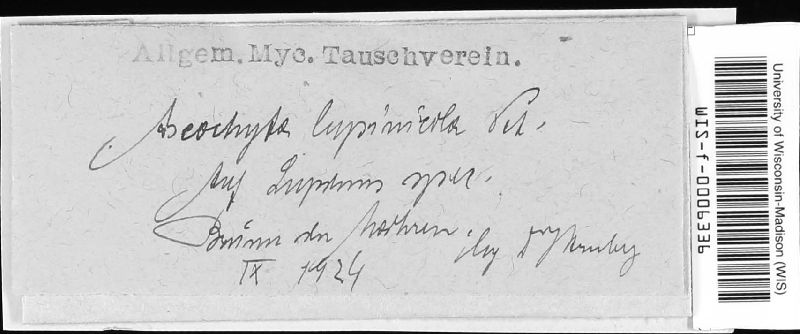 Allgem. Myc. Tauschverein.
Ascochyta lupinicola Pet.
Auf Lupinus spec.
Brünn in Maehren. leg
IX 1924
University of Wisconsin-Madison (WIS)
WIS-f-0006336